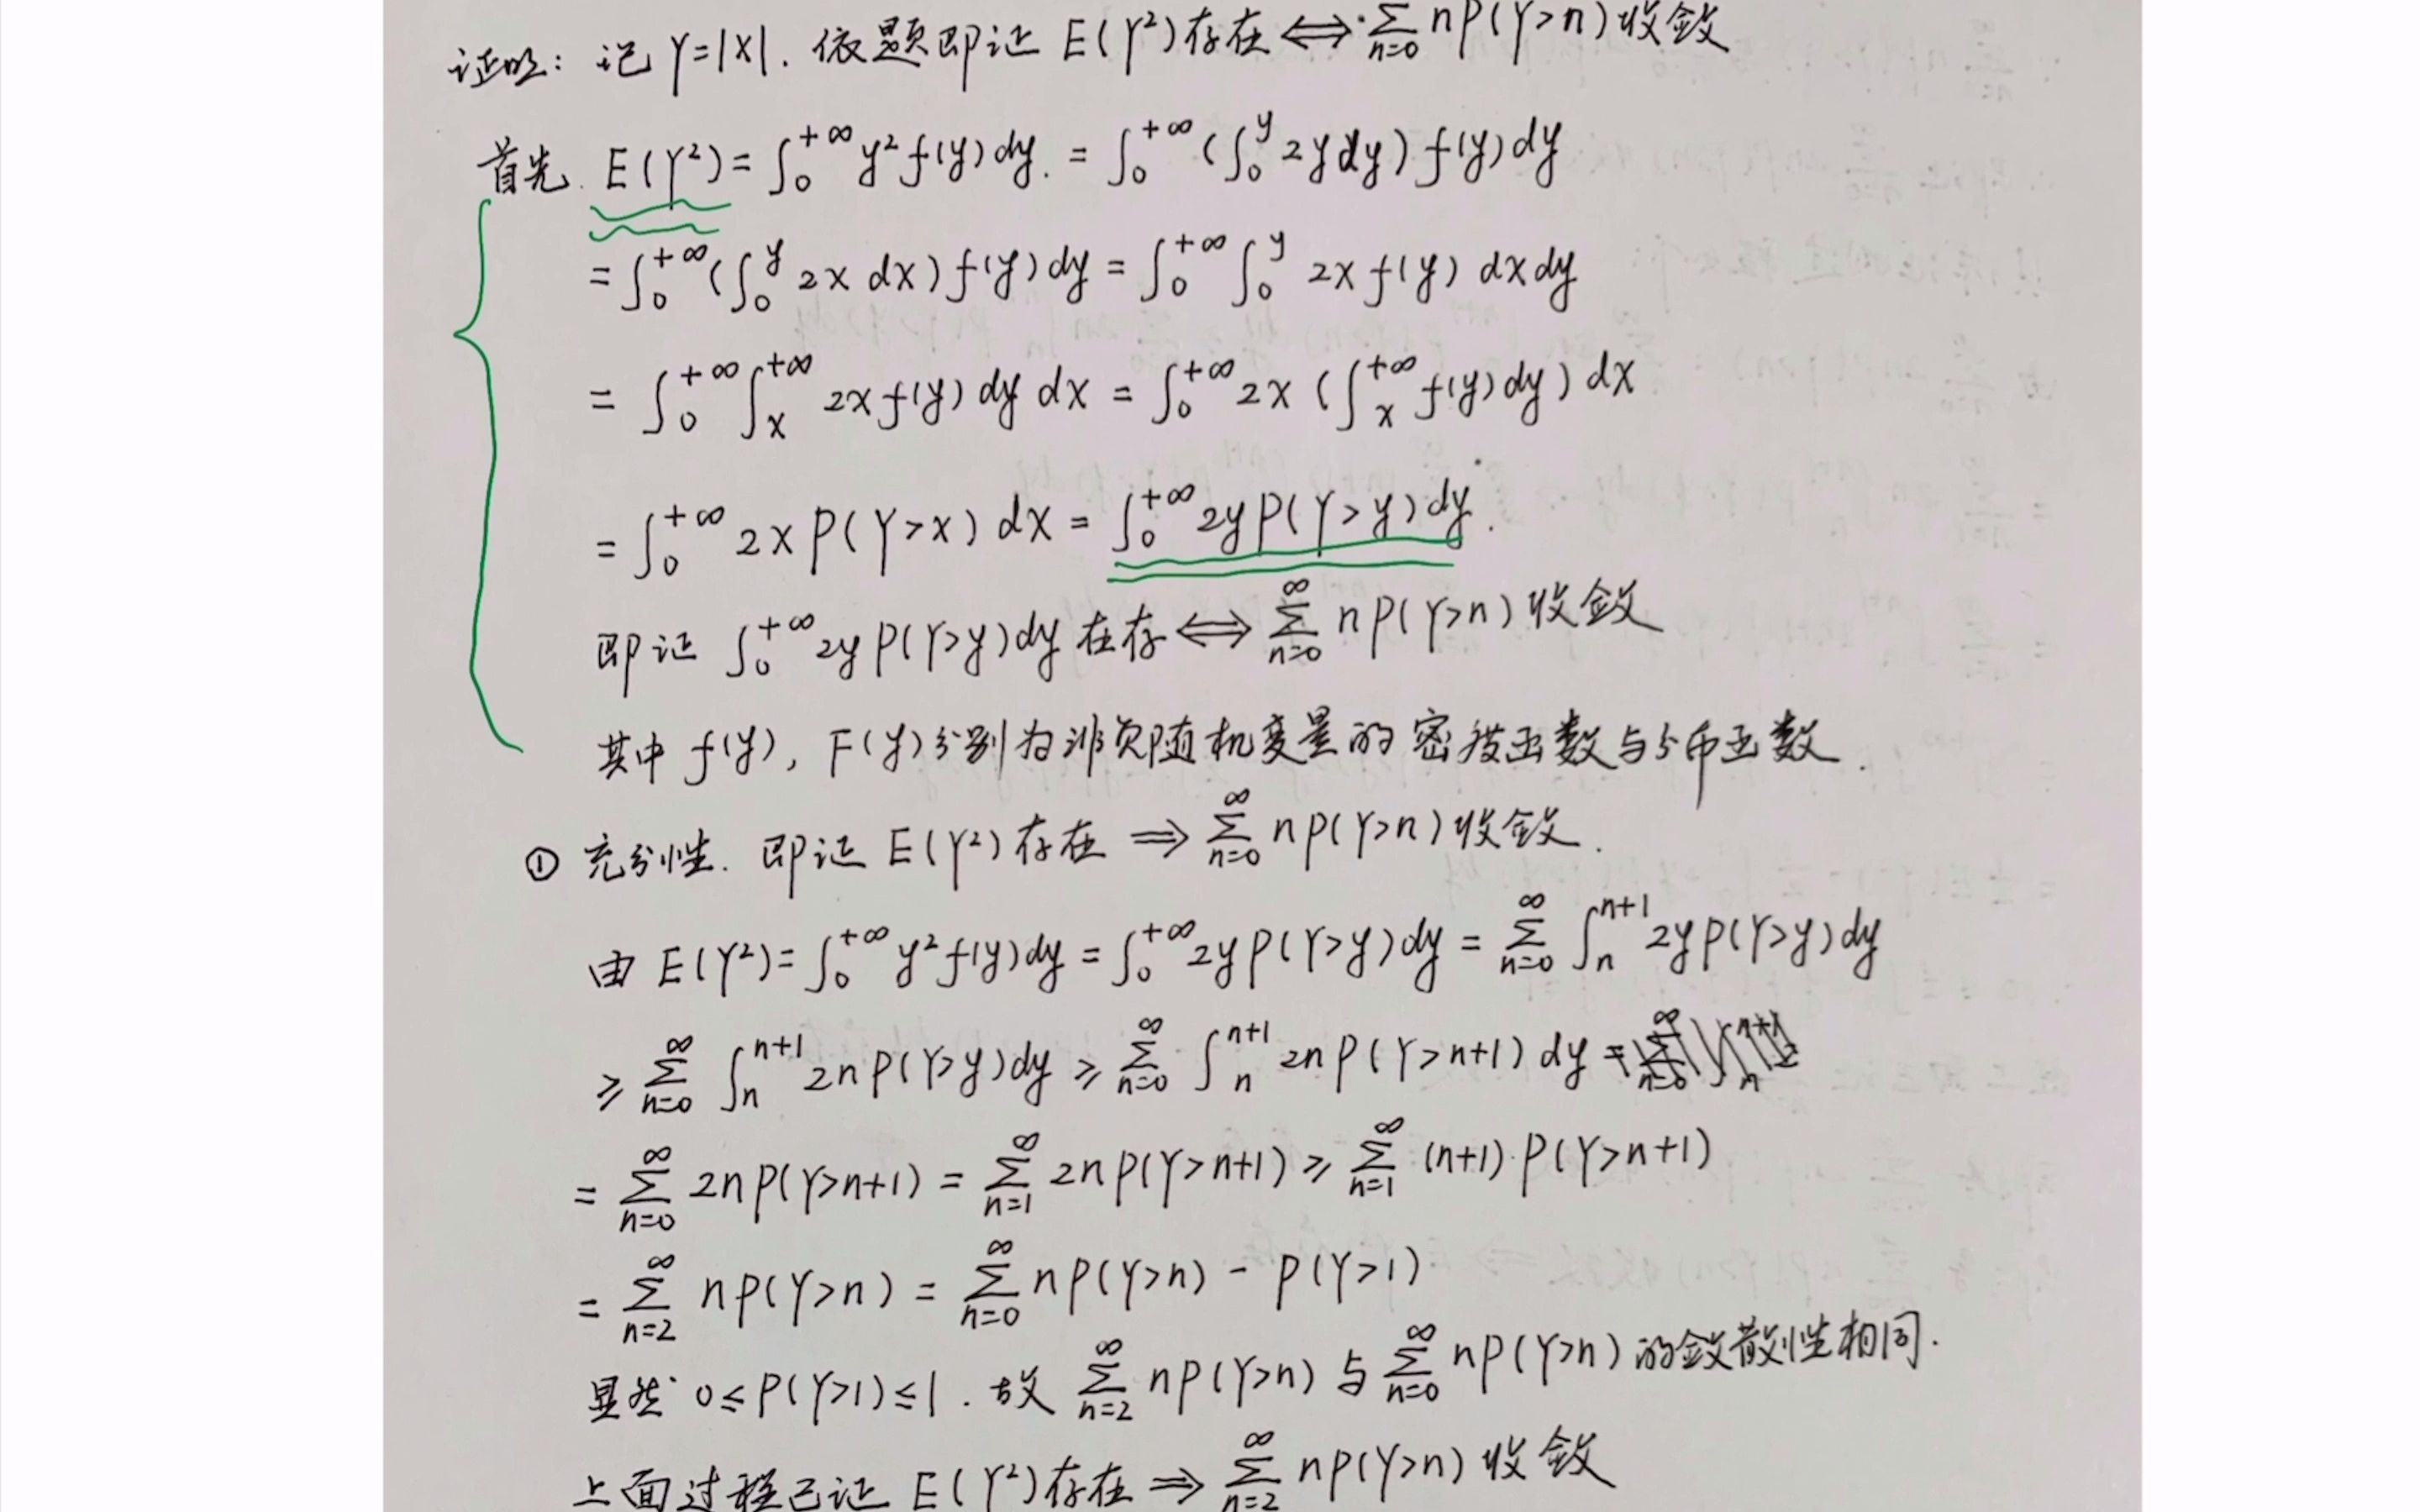 证明：记 Y=|X|. 依题即证 E(Y²)存在⟺∑_{n=0} nP(Y>n)收敛
首先. E(Y²)=∫_0^{+∞} y²f(y)dy. =∫_0^{+∞}(∫_0^y 2ydy)f(y)dy
=∫_0^{+∞}(∫_0^y 2x dx)f(y)dy=∫_0^{+∞}∫_0^y 2xf(y) dxdy
=∫_0^{+∞}∫_x^{+∞} 2xf(y)dy dx=∫_0^{+∞} 2x(∫_x^{+∞} f(y)dy)dx
=∫_0^{+∞} 2xP(Y>x) dx=∫_0^{+∞} 2yP(Y>y)dy.
即证 ∫_0^{+∞} 2yP(Y>y)dy在存⟺∑_{n=0}^{∞} nP(Y>n)收敛
其中 f(y), F(y)分别为非负随机变量的密度函数与分布函数.
① 充分性. 即证 E(Y²)存在 ⟹ ∑_{n=0}^{∞} nP(Y>n)收敛.
由 E(Y²)=∫_0^{+∞} y²f(y)dy=∫_0^{+∞} 2yP(Y>y)dy=∑_{n=0}^{∞}∫_n^{n+1} 2yP(Y>y)dy
≥∑_{n=0}^{∞}∫_n^{n+1} 2nP(Y>y)dy≥∑_{n=0}^{∞}∫_n^{n+1} 2nP(Y>n+1)dy
=∑_{n=0}^{∞} 2nP(Y>n+1)=∑_{n=1}^{∞} 2nP(Y>n+1)≥∑_{n=1}^{∞}(n+1)·P(Y>n+1)
=∑_{n=2}^{∞} nP(Y>n)=∑_{n=0}^{∞} nP(Y>n)-P(Y>1)
显然 0≤P(Y>1)≤1. 故 ∑_{n=2}^{∞} nP(Y>n)与∑_{n=0}^{∞} nP(Y>n)的敛散性相同.
上面过程已证 E(Y²)存在⟹∑_{n=2}^{∞} nP(Y>n)收敛